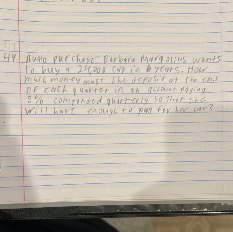 49 Auto purchase Barbara Margolius wants
to buy a 24,000 car in 6 years. How
much money must she deposit at the end
of each quarter in an account paying
5% compounded quarterly so that she
will have enough to pay for her car?